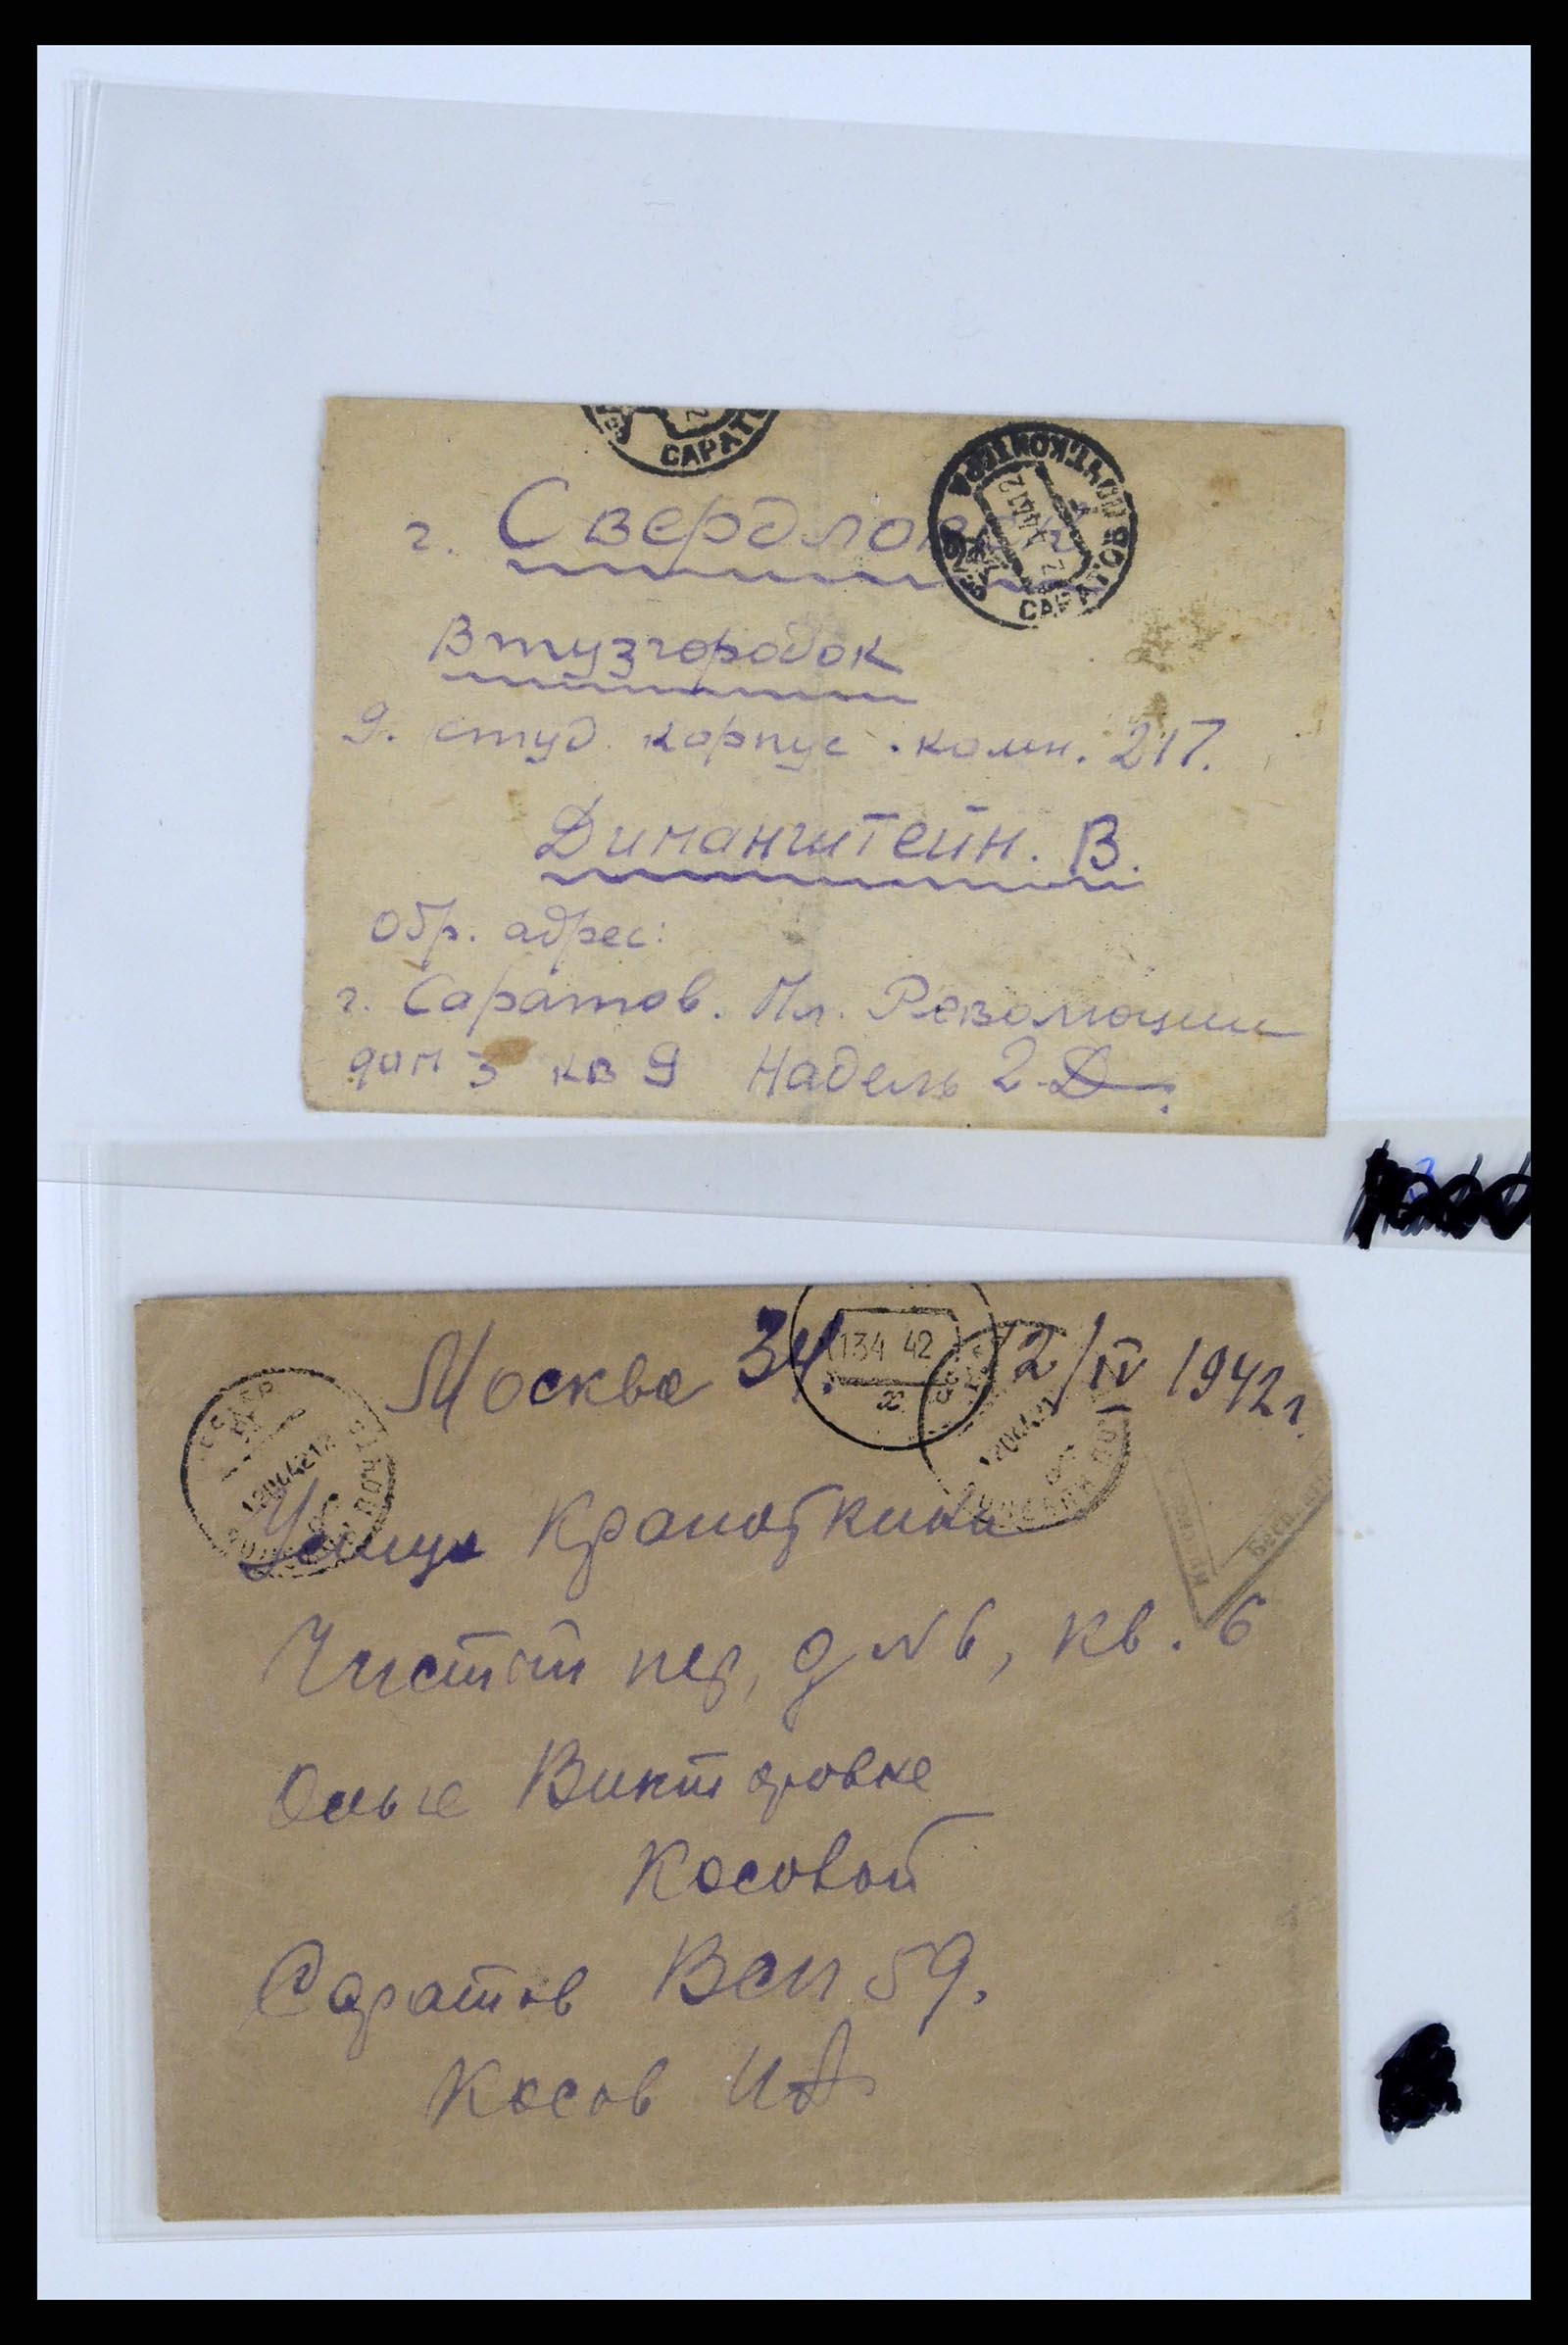 САРАТ
САРАТОВ ПОЧТ. КОНТОРА
г. Свердловск
Втузгородок
9. студ. корпус. комн. 217.
Диманштейн. В.
Обр. адрес:
г. Саратов. Пл. Революции
дом 3 кв 9 Надель
Москва 34. 2/IV 1942 г.
134 42
Улица Крапоткина
Чистый пер, д № 6, кв. 6
Ольге Викторовне
Косовой
Саратов Всп 59.
Косов И А